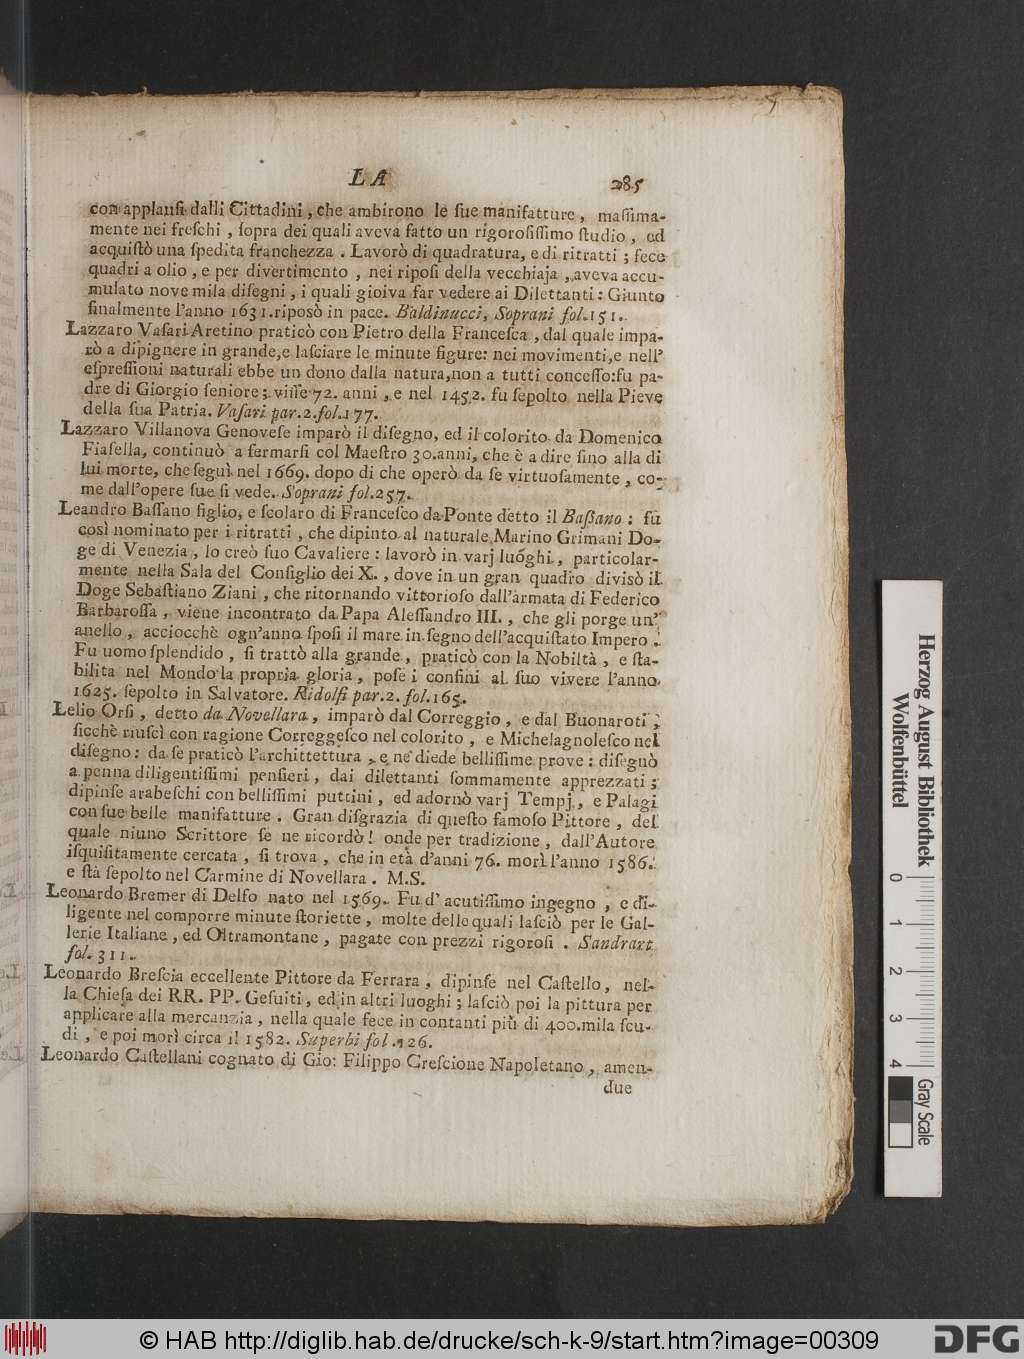 LA 285
con applausi dalli Cittadini, che ambirono le ſue manifatture, maſſima-
mente nei freſchi, ſopra dei quali aveva fatto un rigoroſiſſimo ſtudio, ed
acquiſtò una ſpedita franchezza. Lavorò di quadratura, e di ritratti; fece
quadri a olio, e per divertimento, nei ripoſi della vecchiaja, aveva accu-
mulato nove mila diſegni, i quali gioiva far vedere ai Dilettanti: Giunto
finalmente l'anno 1631. riposò in pace. Baldinucci, Soprani fol. 151.
Lazzaro Vaſari Aretino praticò con Pietro della Franceſca, dal quale impa-
rò a dipignere in grande, e laſciare le minute figure: nei movimenti, e nell'
eſpreſſioni naturali ebbe un dono dalla natura, non a tutti conceſſo: fu pa-
dre di Giorgio ſeniore; viſſe 72. anni, e nel 1452. fu ſepolto nella Pieve
della ſua Patria. Vaſari par. 2. fol. 177.
Lazzaro Villanova Genoveſe imparò il diſegno, ed il colorito da Domenico
Fiaſella, continuò a fermarſi col Maeſtro 30. anni, che è a dire ſino alla di
lui morte, che ſeguì nel 1669. dopo di che operò da ſe virtuoſamente, co-
me dall'opere ſue ſi vede. Soprani fol. 257.
Leandro Baſſano figlio, e ſcolaro di Franceſco da Ponte detto il Baßano: fu
così nominato per i ritratti, che dipinto al naturale Marino Grimani Do-
ge di Venezia, lo creò ſuo Cavaliere: lavorò in varj luoghi, particolar-
mente nella Sala del Conſiglio dei X., dove in un gran quadro divisò il
Doge Sebaſtiano Ziani, che ritornando vittorioſo dall'armata di Federico
Barbaroſſa, viene incontrato da Papa Aleſſandro III., che gli porge un'
anello, acciocchè ogn'anno ſpoſi il mare in ſegno dell'acquiſtato Impero.
Fu uomo ſplendido, ſi trattò alla grande, praticò con la Nobiltà, e ſta-
bilita nel Mondo la propria gloria, poſe i confini al ſuo vivere l'anno
1625. ſepolto in Salvatore. Ridolfi par. 2. fol. 165.
Lelio Orſi, detto da Novellara, imparò dal Correggio, e dal Buonaroti,
ſicchè riuſcì con ragione Correggeſco nel colorito, e Michelagnoleſco nel
diſegno: da ſe praticò l'architettura, e ne diede belliſſime prove: diſegnò
a penna diligentiſſimi penſieri, dai dilettanti ſommamente apprezzati;
dipinſe arabeſchi con belliſſimi puttini, ed adornò varj Tempj, e Palagi
con ſue belle manifatture. Gran diſgrazia di queſto famoſo Pittore, del
quale niuno Scrittore ſe ne ricordò! onde per tradizione, dall'Autore
iſquiſitamente cercata, ſi trova, che in età d'anni 76. morì l'anno 1586.
e ſtà ſepolto nel Carmine di Novellara. M.S.
Leonardo Bremer di Delfo nato nel 1569. Fu d' acutiſſimo ingegno, e di-
ligente nel comporre minute ſtoriette, molte delle quali laſciò per le Gal-
lerie Italiane, ed Oltramontane, pagate con prezzi rigoroſi. Sandrart
fol. 311.
Leonardo Breſcia eccellente Pittore da Ferrara, dipinſe nel Caſtello, nel-
la Chieſa dei RR. PP. Geſuiti, ed in altri luoghi; laſciò poi la pittura per
applicare alla mercanzia, nella quale fece in contanti più di 400. mila ſcu-
di, e poi morì circa il 1582. Superbi fol. 126.
Leonardo Caſtellani cognato di Gio: Filippo Creſcione Napoletano, amen-
due
Herzog August Bibliothek
Wolfenbüttel
0 1 2 3 4
Gray Scale
© HAB http://diglib.hab.de/drucke/sch-k-9/start.htm?image=00309
DFG